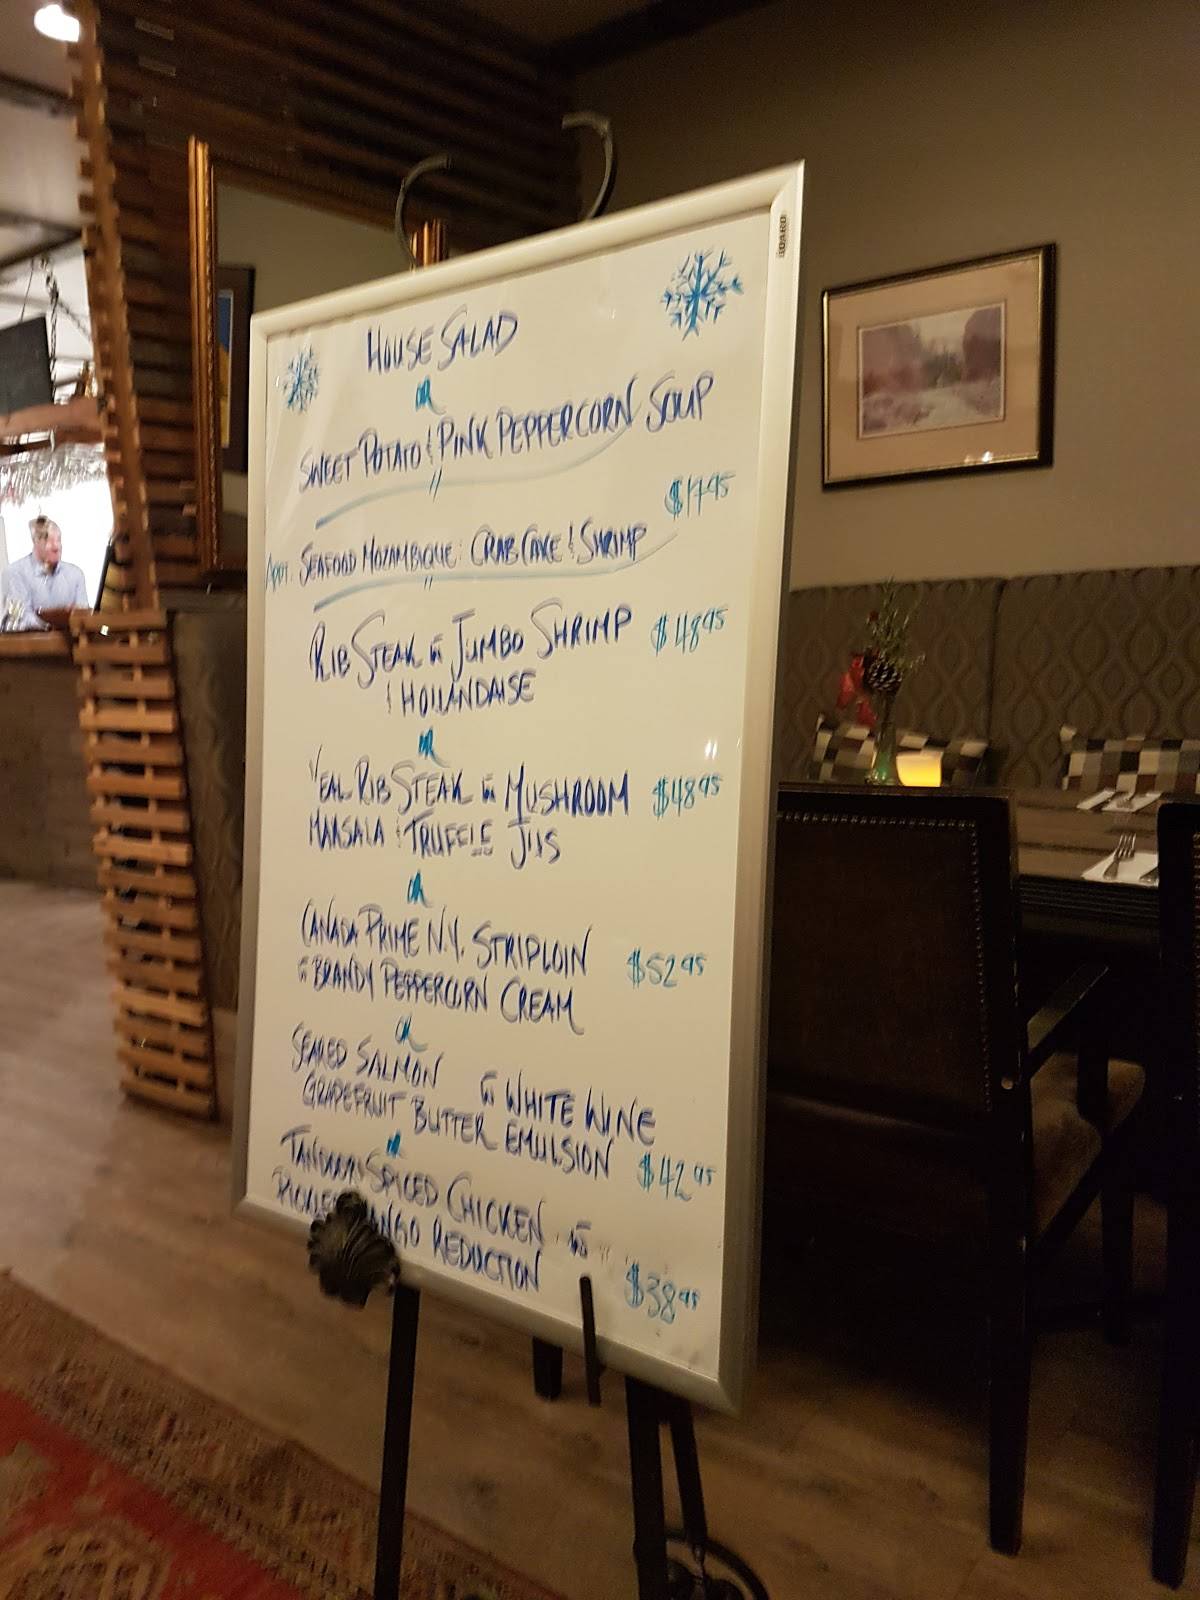 HOUSE SALAD
OR
SWEET POTATO & PINK PEPPERCORN SOUP
$17.95
APP: SEAFOOD MOZAMBIQUE: CRAB CAKE & SHRIMP
RIB STEAK W JUMBO SHRIMP $48.95
& HOLLANDAISE
OR
VEAL RIB STEAK W MUSHROOM $48.95
MARSALA & TRUFFLE JUS
OR
CANADA PRIME N.Y. STRIPLOIN $52.95
W BRANDY PEPPERCORN CREAM
OR
SEARED SALMON W WHITE WINE
GRAPEFRUIT BUTTER EMULSION $42.95
OR
TANDOORI SPICED CHICKEN W
REDUCTION $38.95